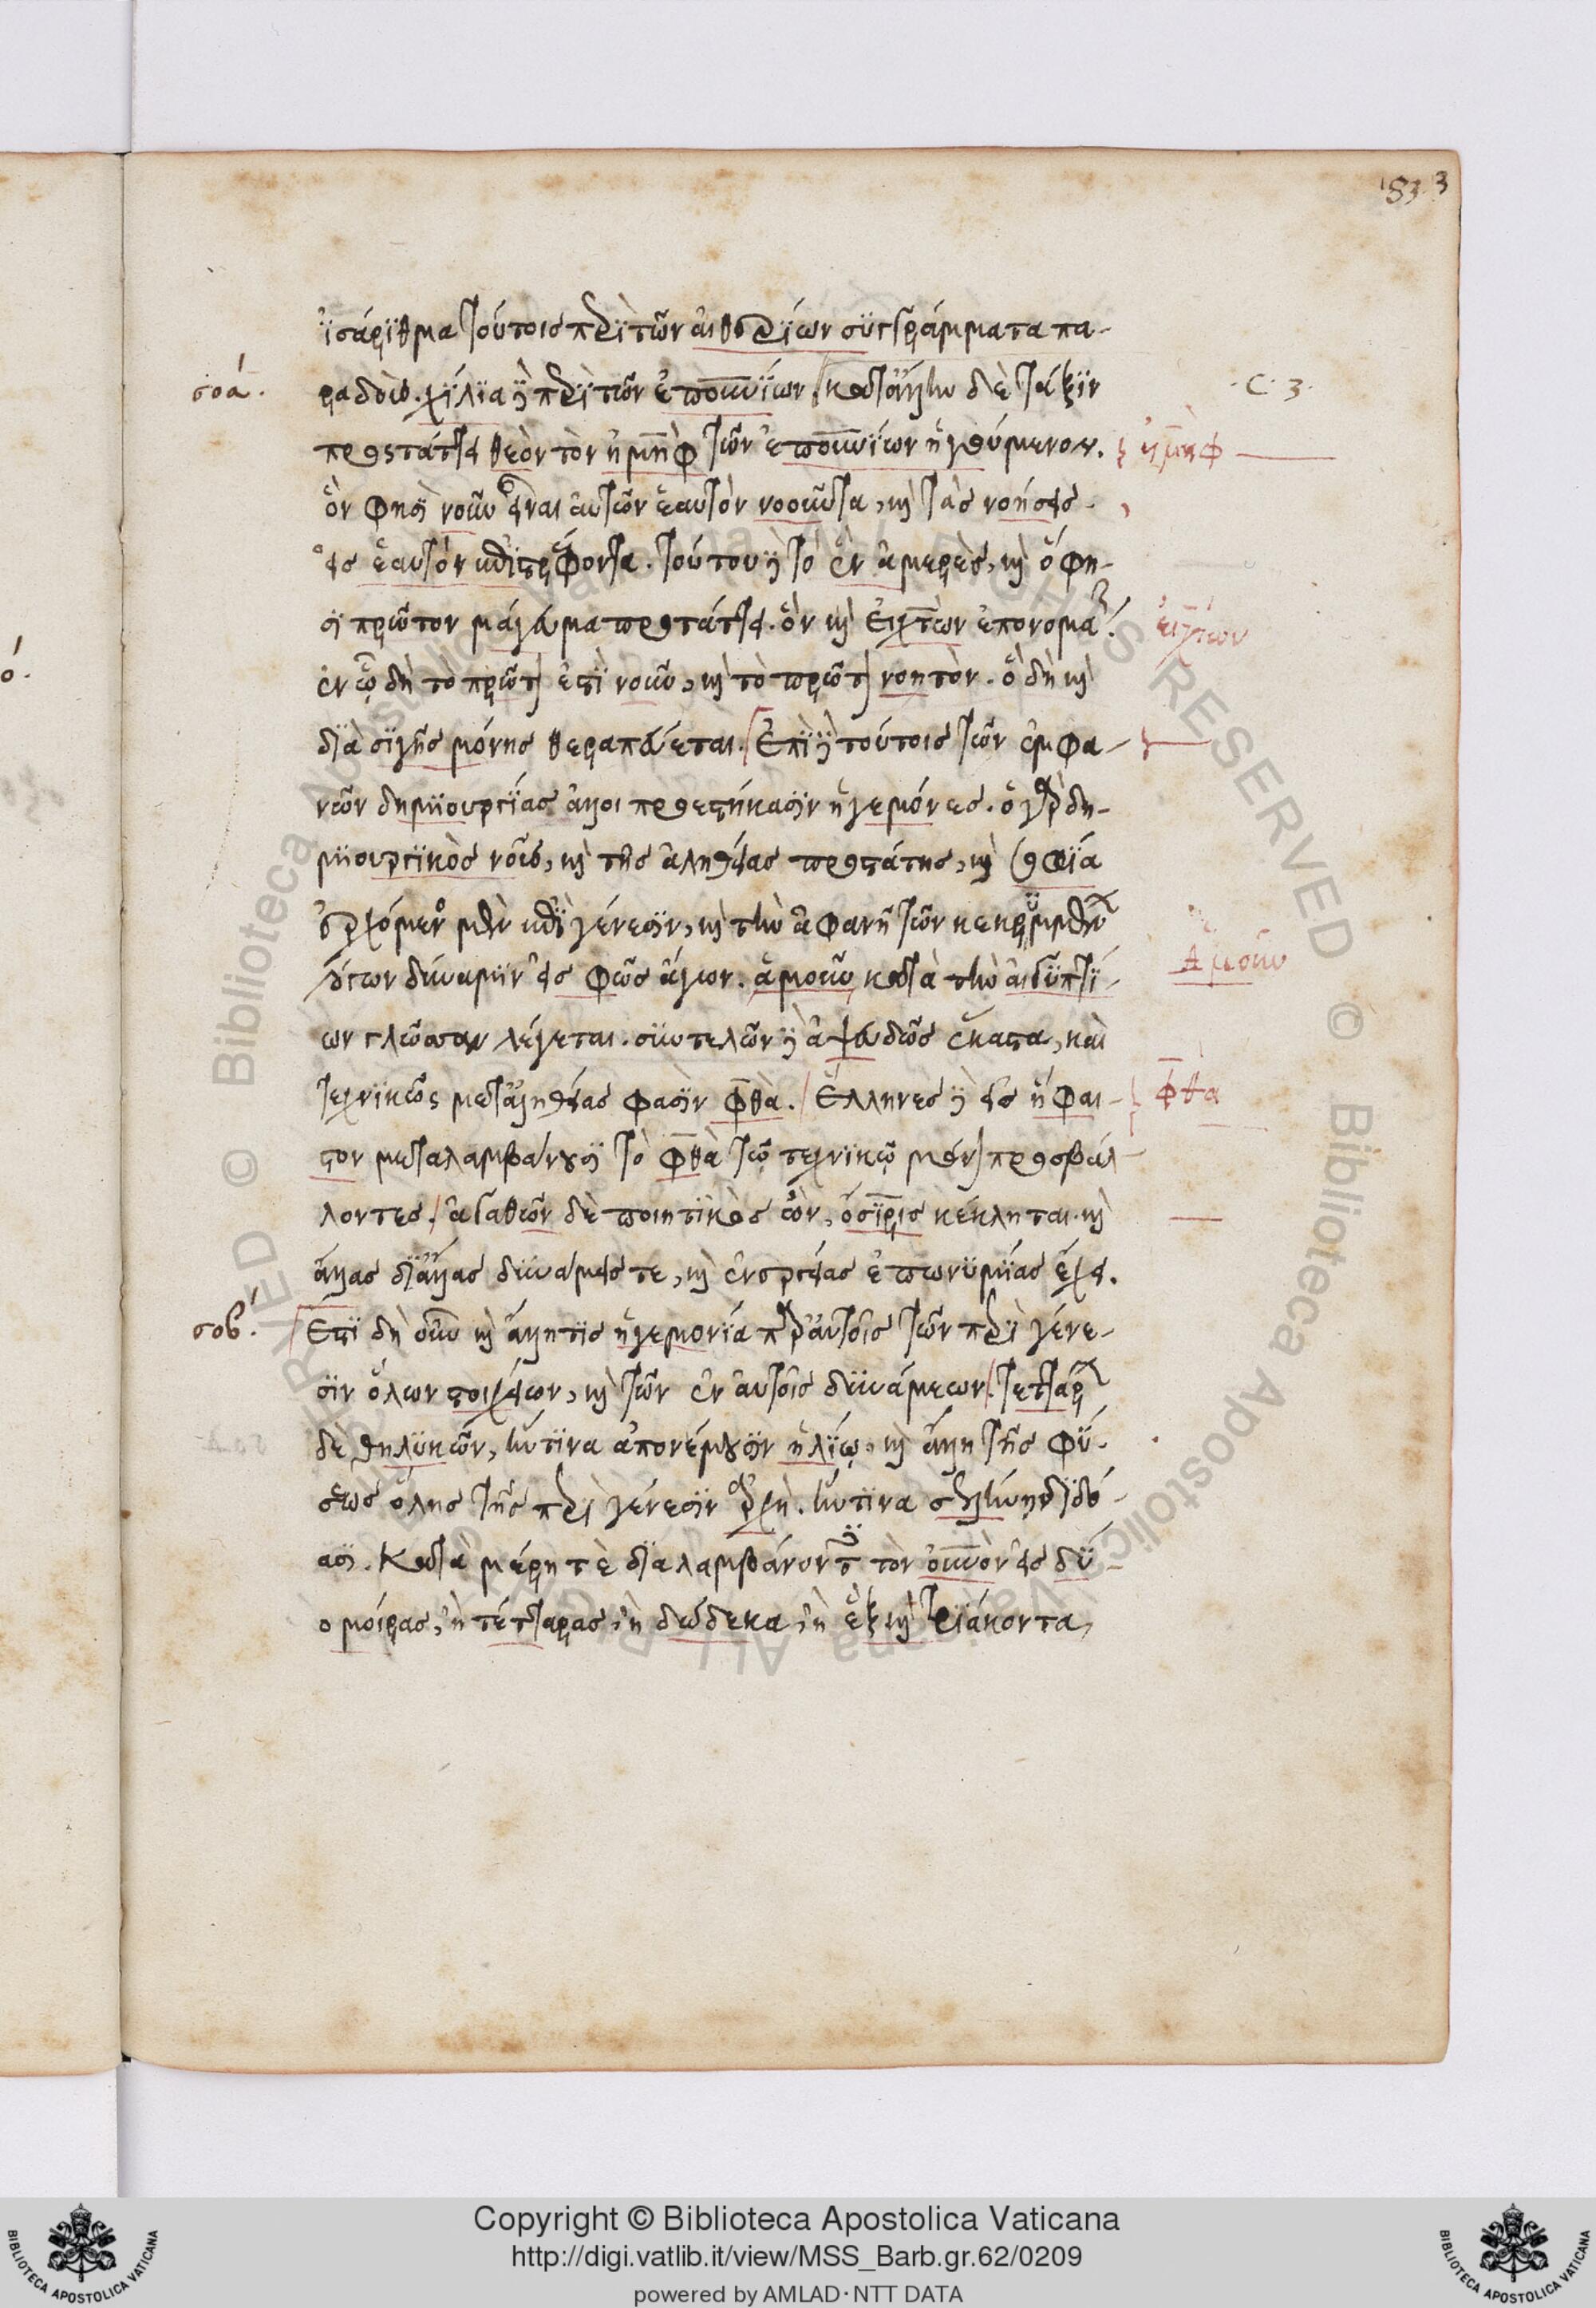 183 3
ἰσάριθμα τούτοις περὶ τῶν αἰθερίων συγγράμματα πα-
σοά. ραδούς. χίλια δὲ περὶ τῶν ἐπουρανίων. κατ' ἄλλην δὲ τάξιν ·C·3·
προστάττει θεὸν τὸν ἠμὴφ τῶν ἐπουρανίων ἡγούμενον. ἠμὴφ
ὅν φησι νοῦν εἶναι αὐτὸν ἑαυτὸν νοοῦντα, καὶ τὰς νοήσεις
εἰς ἑαυτὸν ἐπιστρέφοντα. τούτου δὲ τὸ ἓν ἀμερὲς, καὶ ὅ φη-
σι πρῶτον μάγευμα προστάττει. ὃν καὶ εἰχτὼν ἐπονομάζει. εἰχτων
ἐν ᾧ δὴ τὸ πρῶτόν ἐστι νοοῦν, καὶ τὸ πρῶτον νοητὸν. ὃ δὴ καὶ
διὰ σιγῆς μόνης θεραπεύεται. Ἐπὶ δὲ τούτοις τῶν ἐμφα-
νῶν δημιουργίας ἄλλοι προεστήκασιν ἡγεμόνες. ὁ γὰρ δη-
μιουργικὸς νοῦς, καὶ τῆς ἀληθείας προστάτης, καὶ σοφία
ἐρχόμενος μὲν ἐπὶ γένεσιν, καὶ τὴν ἀφανῆ τῶν κεκρυμμένων
λόγων δύναμιν εἰς φῶς ἄγων. ἀμοῦν κατὰ τὴν αἰγυπτί- Ἀμοῦν
ων γλῶσσαν λέγεται. συντελῶν δὲ ἀψευδῶς ἕκαστα, καὶ
τεχνικῶς μετ' ἀληθείας φασὶν φθὰ. Ἕλληνες δὲ εἰς ἥφαι- φθα
στον μεταλαμβάνουσι τὸ φθὰ τῷ τεχνικῷ μόνον προσβάλ-
λοντες. ἀγαθῶν δὲ ποιητικὸς ὢν, ὄσιρις κέκληται. καὶ
ἄλλας δι' ἄλλας δυνάμεις τε, καὶ ἐνεργείας ἐπωνυμίας ἔχει.
σοβ. Ἔστι δὴ οὖν καὶ ἄλλη τις ἡγεμονία παρ' αὐτοῖς τῶν περὶ γένε-
σιν ὅλων στοιχείων, καὶ τῶν ἐν αὐτοῖς δυνάμεων. τεττάρων
δὲ θηλυκῶν, ἥντινα ἀπονέμουσιν ἡλίῳ, καὶ ἄλλη τῆς φύ-
σεως ὅλης τῆς περὶ γένεσιν ἀρχὴ. ἥντινα σελήνῃ διδό-
ασι. Κατὰ μέρη τὲ διαλαμβάνοντες τὸν οὐρανὸν εἰς δύ-
ο μοίρας, ἢ τέτταρας, ἢ δώδεκα, ἢ ἓξ καὶ τριάκοντα,
Copyright © Biblioteca Apostolica Vaticana
http://digi.vatlib.it/view/MSS_Barb.gr.62/0209
powered by AMLAD·NTT DATA